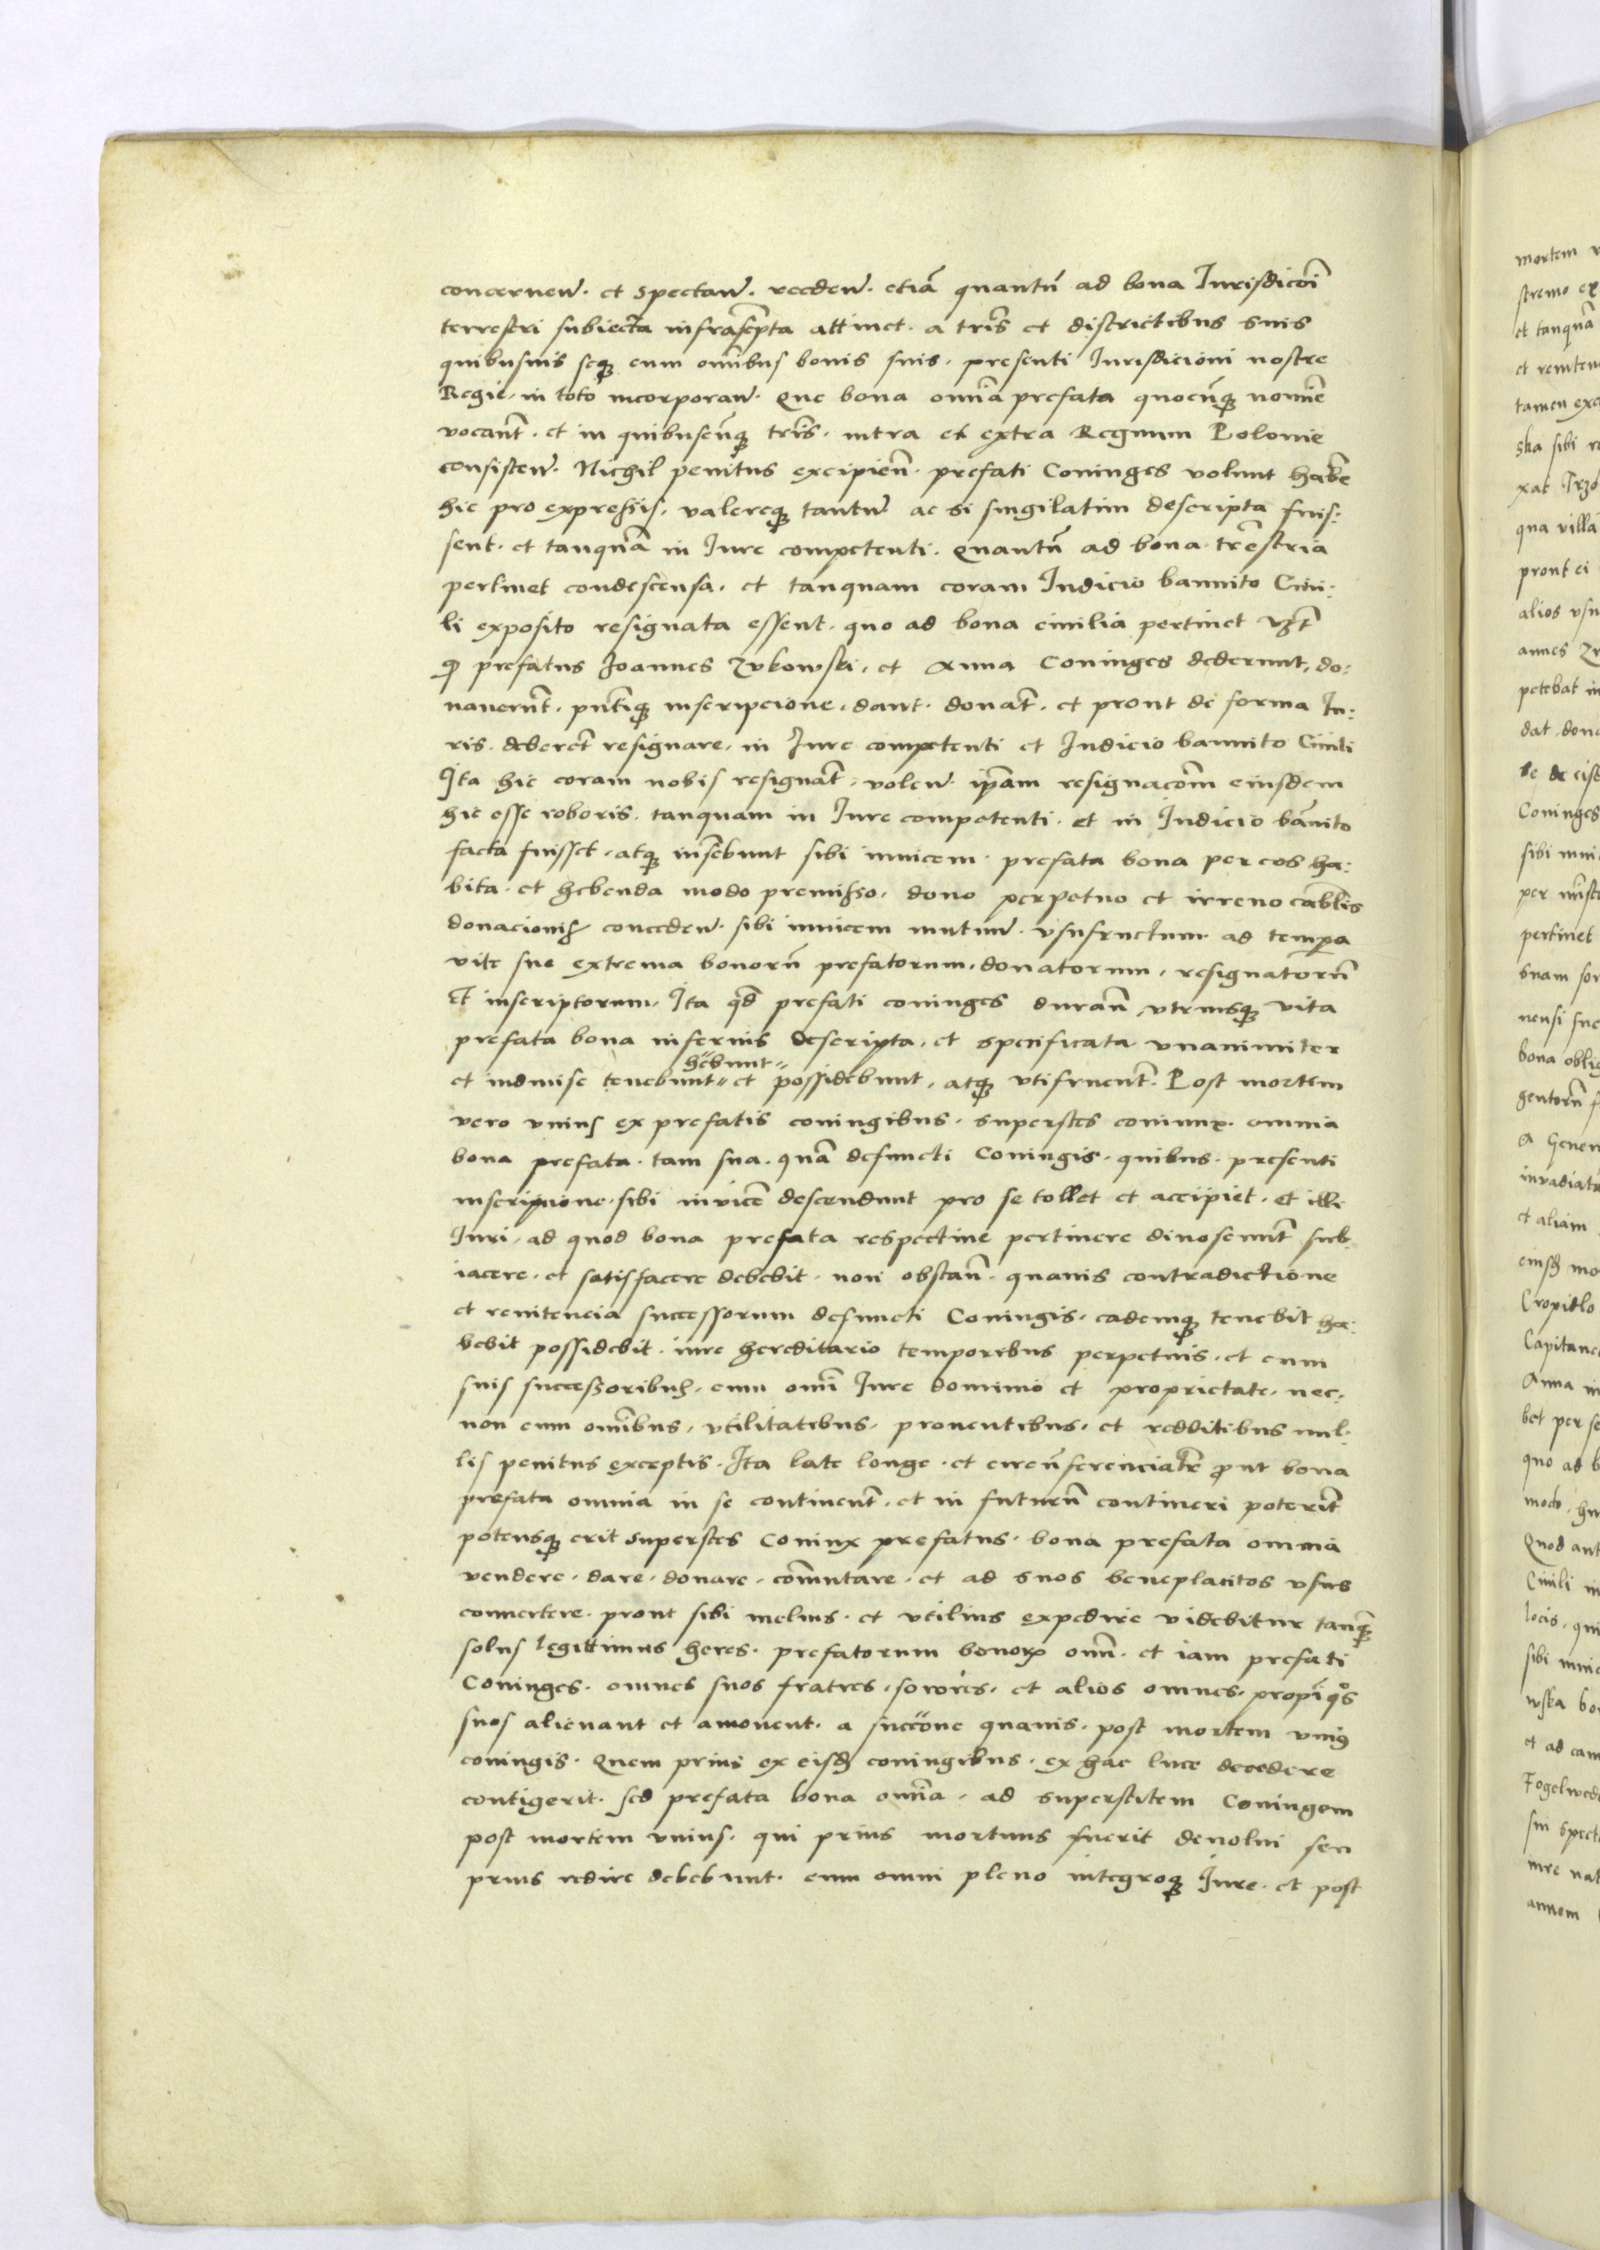 concernen̄. et spectan̄. recden̄. etiā quantū ad bona Iurisdicōi
terrestri subiecta infrascr̄pta attinet. a tr̄is et districtibus suis
quibusuis seq̨ cum om̄ibus bonis suis. presenti Iurisdicioni nostre
Regie. in toto incorporan̄. Que bona om̄ia prefata quocūq̨ nomīe
vocant̄. et in quibuscūq̨ tr̄is. intra et extra Regnum Polonie
consisten̄. Nichil penitus excipien̄. prefati Coniuges volunt habēe
hic pro expressis, valereq̨ tantun̄ ac si singilatim descripta fuis:
sent. et tanquā in Iure competenti. Quantū ad bona tr̄estria
pertinet condescensa. et tanquam coram Iudicio bannito Ciui:
li exposito resignata essent. quo ad bona ciuilia pertinet vz̄t
q̨ prefatus Joannes Zukowski, et Anna Coniuges dederunt, do:
nauerūt. pn̄tiq̨ inscripcione. dant. donāt. et prout de forma Iu:
ris. deberēt resignare. in Iure competenti et Iudicio bannito Ciuili
Ita hic coram nobis resignāt. volen̄ ip̄am resignacōm eiusdem
hic esse roboris. tanquam in Iure competenti. et in Iudicio bānito
facta fuisset. atq̨ inscr̄ibunt sibi inuicem. prefata bona per eos ha:
bita. et habenda modo premisso. dono perpetuo et irreuocabl̄is
donacionis conceden̄. sibi inuicem mutuu̅. vsufructum ad tempa
vite sue extrema bonorū prefatorum. donatorum, resignatorū
Et inscriptorum. Ita qd̄ prefati coniuges durān̄ vtriusq̨ vita
prefata bona inferius descripta, et specificata vnanimiter
hēbunt
et indiuise tenebunt et possidebunt, atq̨ vtifruent̄. Post mortem
vero vnius ex prefatis coniugibus. superstes coniunx. omnia
bona prefata. tam sua. quā defuncti Coniugis. quibus. presenti
inscripcione sibi inuicē descendunt pro se tollet et accipiet. et illi
Iuri, ad quod bona prefata respectiue pertinere dinoscunt̄ sub:
iacere. et satisfacere debebit. non obstan̄. quauis contradictione
et renitencia successorum defuncti Coniugis. eademq̨ tenebit ha:
bebit possidebit. iure hereditario temporibus perpetuis. et cum
suis successoribus. cum om̄i Iure dominio et proprietate. nec:
non cum om̄ibus, vtilitatibus, prouentibus. et redditibus nul:
lis penitus exceptis. Ita late longe. et circūferenciatīe p̄ut bona
prefata omnia in se continent̄. et in futurū contineri poterīt
potensq̨ erit superstes Coniux prefatus. bona prefata omnia
vendere. dare. donare. com̄utare. et ad suos beneplacitos vsus
conuertere. prout sibi melius. et vtilius expedire videbitur tanq̨
solus legittimus heres. prefatorum bonoꝝ om̄. et iam prefati
Coniuges. omnes suos fratres. sorores. et alios omnes. propīqos
suos alienant et amouent. a succ̄one quauis. post mortem vnius
coniugis. Quem prius ex eisd̄ coniugibus. ex hac luce decedere
contigerit. sed prefata bona om̄ia. ad superstitem Coniugem
post mortem vnius. qui prius mortuus fuerit deuolui seu
prius redire debebunt. cum omni pleno integroq̨ Iure. et post